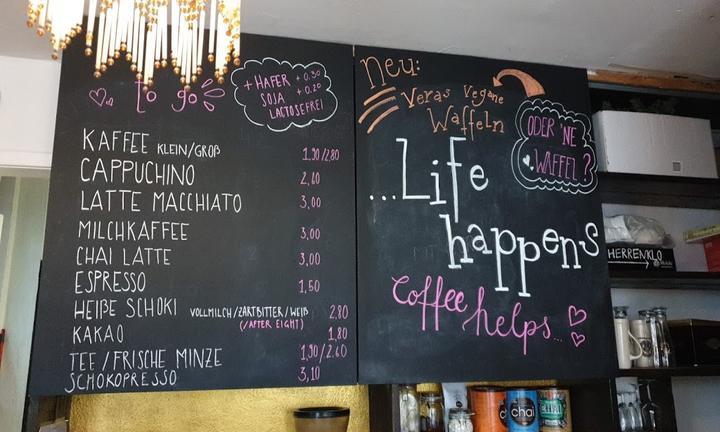 to go
+ HAFER + 0.30
SOJA + 0.20
LACTOSEFREI
KAFFEE KLEIN/GROß 1,90/2.80
CAPPUCHINO 2,80
LATTE MACCHIATO 3,00
MILCHKAFFEE 3,00
CHAI LATTE 3,00
ESPRESSO 1,50
HEIßE SCHOKI VOLLMILCH/ZARTBITTER/WEIß 2.80
(/AFTER EIGHT)
KAKAO 1,80
TEE/FRISCHE MINZE 1,90/2.60
SCHOKOPRESSO 3,10
Neu:
Veras Vegane
Waffeln
ODER 'NE
WAFFEL?
...Life
happens
Coffee
helps...
HERRENKLO
chai